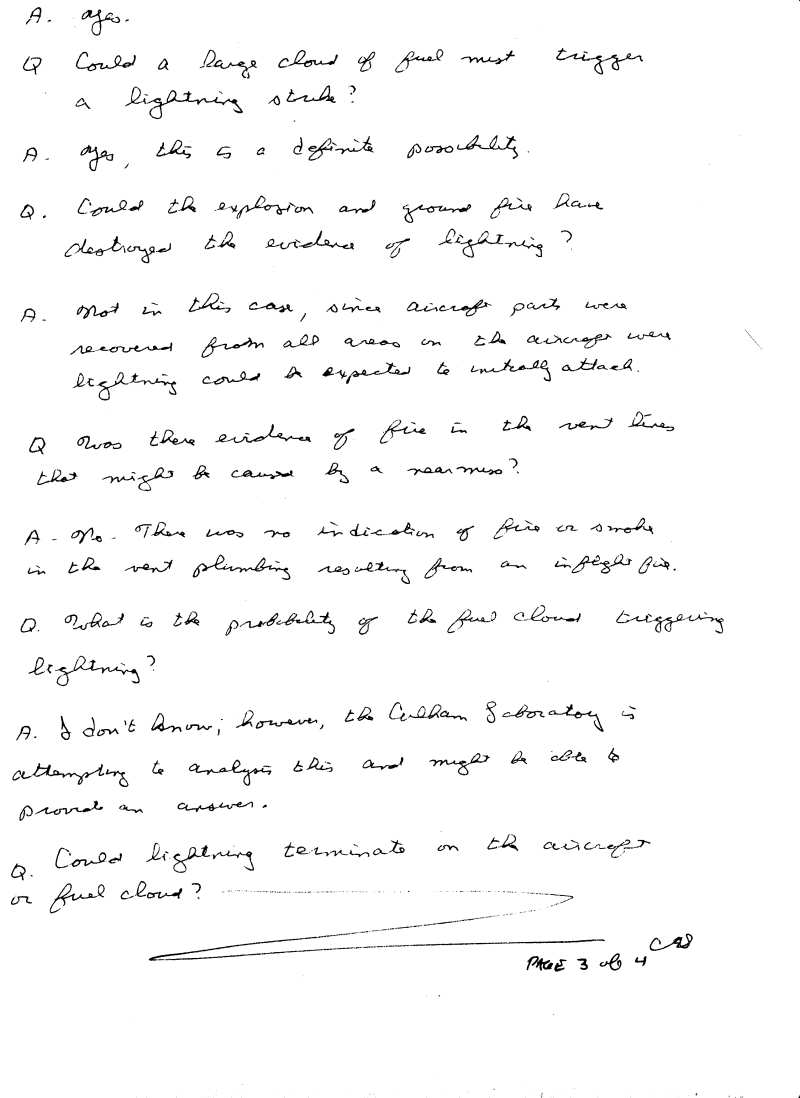 A. Yes.
Q Could a large cloud of fuel mist trigger
a lightning strike?
A. Yes, this is a definite possibility.
Q. Could the explosion and ground fire have
destroyed the evidence of lightning?
A. Not in this case, since aircraft parts were
recovered from all areas on the aircraft were
lightning could be expected to initially attach.
Q Was there evidence of fire in the vent lines
that might be caused by a near miss?
A - No. There was no indication of fire or smoke
in the vent plumbing resulting from an inflight fire.
Q. What is the probability of the fuel cloud triggering
lightning?
A. I don't know; however, the Culham Laboratory is
attempting to analysis this and might be able to
provide an answer.
Q. Could lightning terminate on the aircraft
or fuel cloud?
PAGE 3 of 4